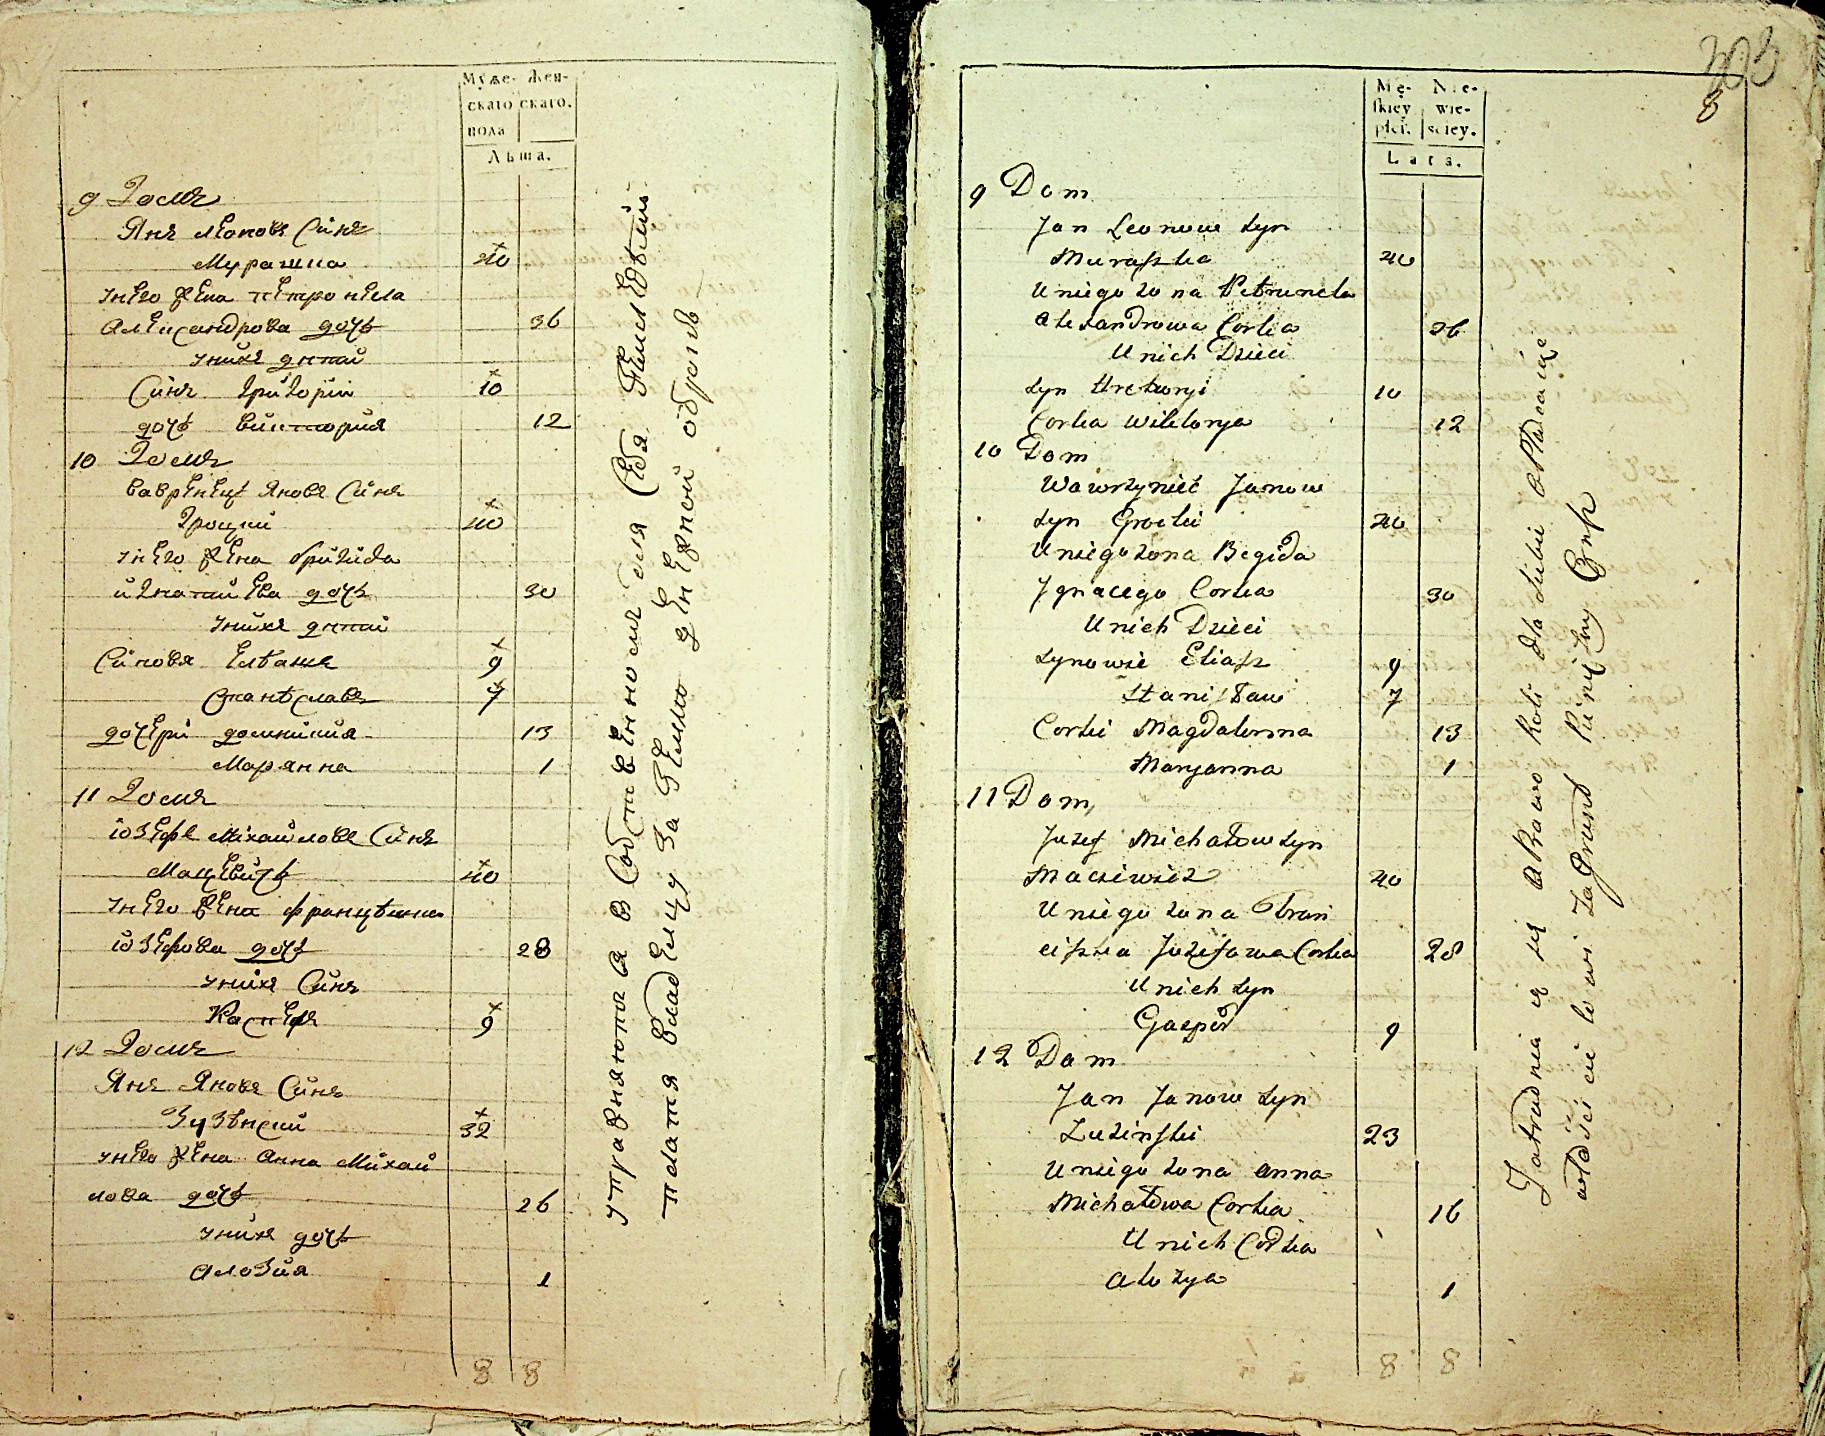 Муже- Жен-
скаго скаго.
пола
Лѣта.
9 Домъ
Янъ Леоновъ Синъ
Мурашка 40
унего жена петронеля
Александрова дочь 36
унихъ дети
Синъ Григорiй 10
дочь Виктория 12
10 Домъ
Вавренецъ Яновъ Синъ
Гроцки 40
унего жена Бригида
игнатиева дочь 30
унихъ дети
Синовя Елiашъ 9
Станиславъ 7
дочери доминикия 13
Марянна 1
11 Домъ
iозефъ Михайловъ Синъ
Мацевичъ 40
унего жена францишка
iозефова дочь 28
унихъ Синъ
Касперъ 9
12 Домъ
Янъ Яновъ Синъ
Зузинский 32
унего жена Анна Михай
лова дочь 26
унихъ дочь
Алозия 1
8 8
упражняются в
платя владелцу за Землю денежной оброкъ
303
8
Mę- Nie-
skiey wie-
płci. sciey.
Lata.
9 Dom
Jan Leonow syn
Muraszka 40
Uniego zona Petrunela
Alexandrowa Corka 36
Unich Dzieci
syn Hrehory 10
Corka Wiktorya 12
10 Dom
Wawrzyniec Janow
syn Grocki 40
Uniego zona Begida
Jgnacego Corka 30
Unich Dzieci
synowie Eliasz 9
Stanisław 7
Corki Magdalenna 13
Maryanna 1
11 Dom
Juzef Michałow syn
Maciewicz 40
Uniego zona Fran
ciszka Juzefowa Corka 28
Unich syn
Gasper 9
12 Dom
Jan Janow syn
Zuzinski 23
Uniego zona Anna
Michałowa Corka 16
Unich Corka
Alozya 1
8 8
Zatrudnia ią się dla siebie opłacaiąc
za Grunt Pienięzny Czynsz